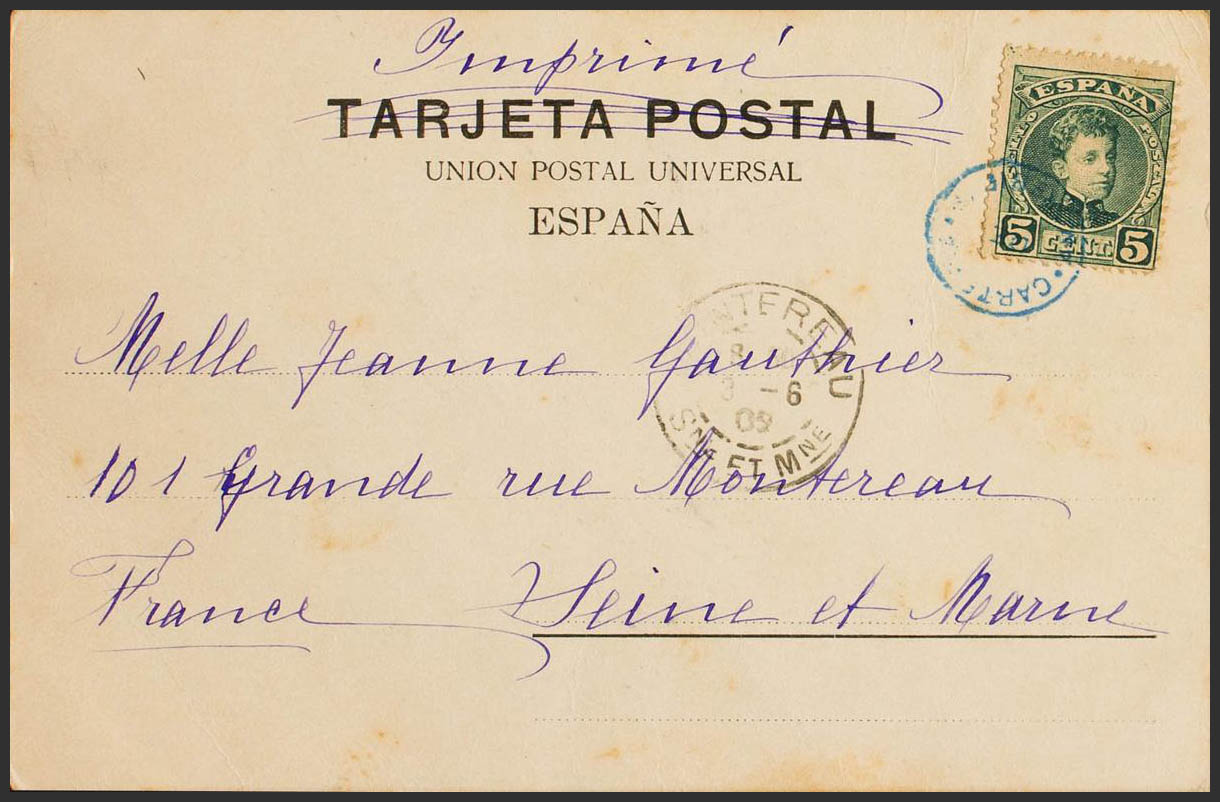 Imprimé
TARJETA POSTAL
UNION POSTAL UNIVERSAL
ESPAÑA
ESPAÑA
5 CENT. 5
CARTE
MONTEREAU
-6
03
SNE ET MNE
Melle Jeanne Gauthier
101 Grande rue Montereau
France Seine et Marne